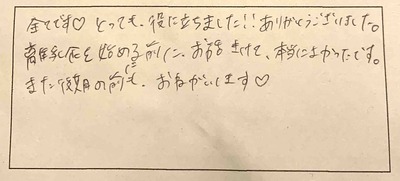 全てです♡ とっても、役に立ちました!! ありがとうございました。
離乳食を始める前に、お話きけて、本当によかったです。
また後期の前にも、おねがいします♡